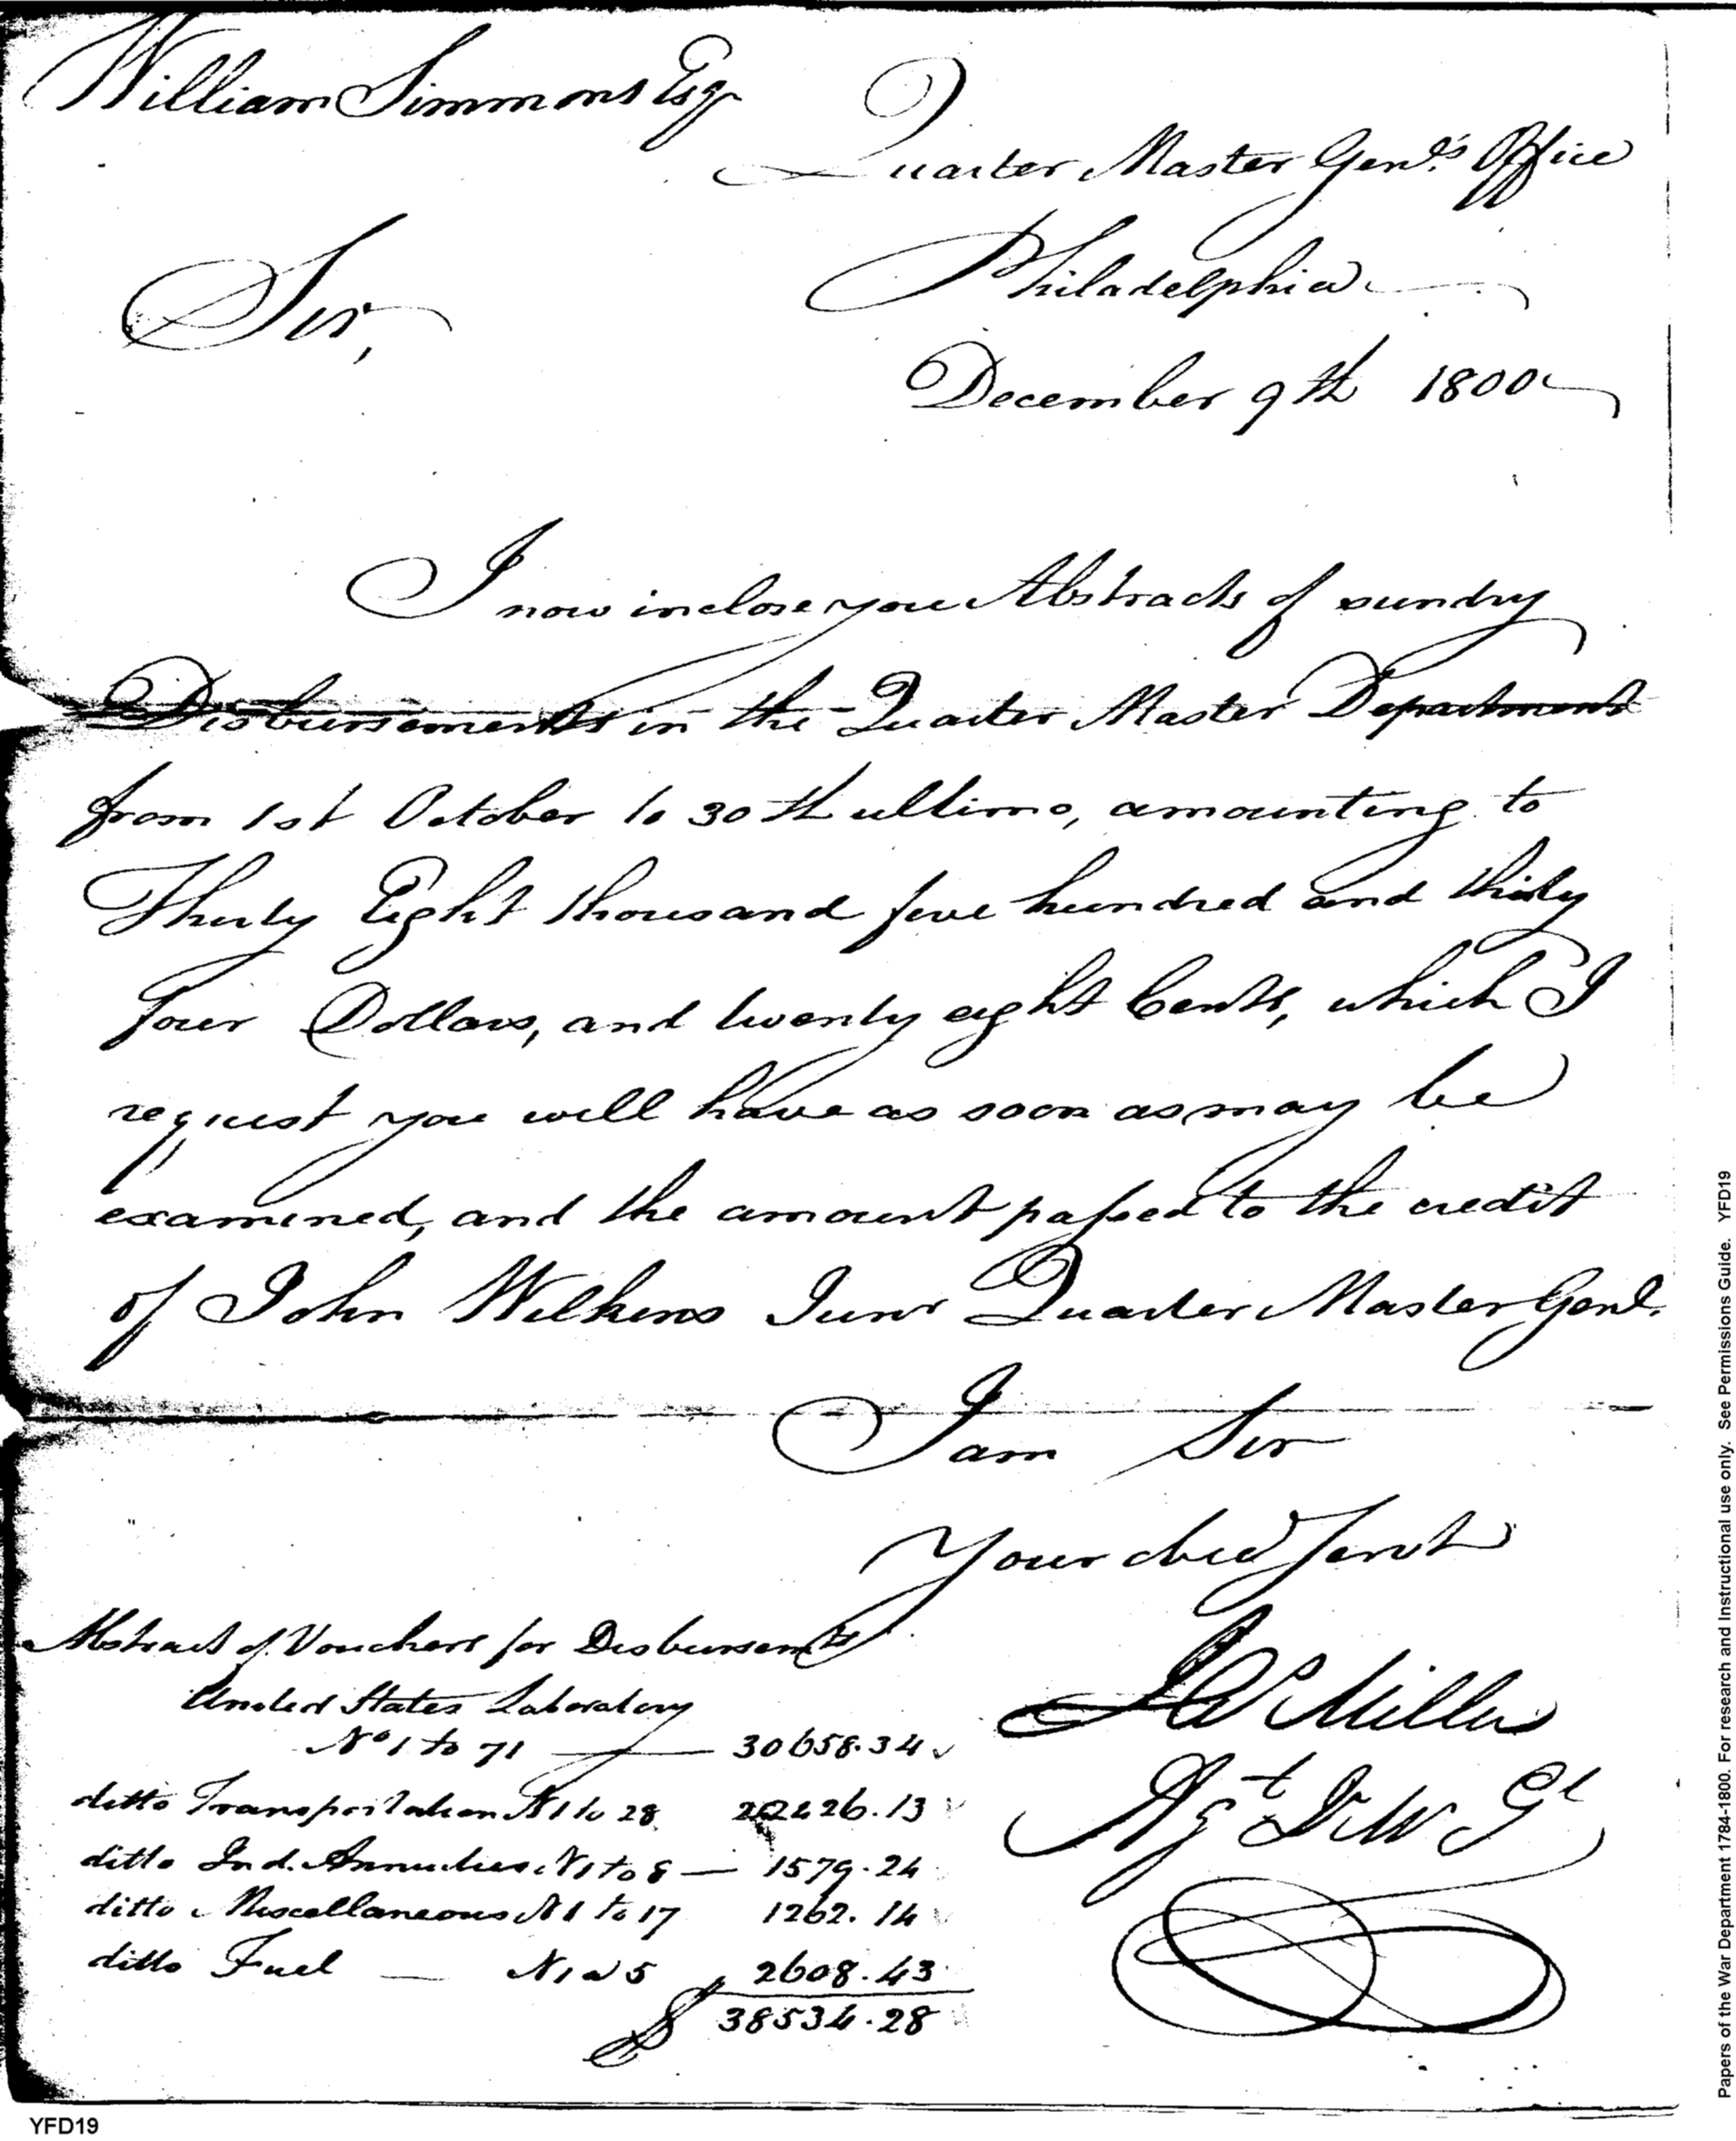 William Simmons Esqr
Quarter Master Genls Office
Philadelphia
Sir,
December 9th 1800
I now inclose you Abstracts of sundry
Disbursements in the Quarter Master Department
from 1st October to 30th ultimo, amounting to
Thirty Eight thousand five hundred and thirty
four Dollars, and twenty eight Cents, which I
request you will have as soon as may be
examined, and the amount passed to the credit
of John Wilkins Junr Quarter Master Genl.
I am Sir
Your obed Servt
Miller
Agt Q M Gl
Abstract of Vouchers for Disbursemts
United States Laboratory
No 1 to 71 — 30658.34
ditto Transportation N 1 to 28 2426.13
ditto Ind. Annuities N 1 to 8 — 1579.24
ditto Miscellaneous N 1 to 17 1262.14
ditto Fuel — N 1 a 5 2608.43
$ 38534.28
YFD19
Papers of the War Department 1784-1800. For research and Instructional use only. See Permissions Guide. YFD19